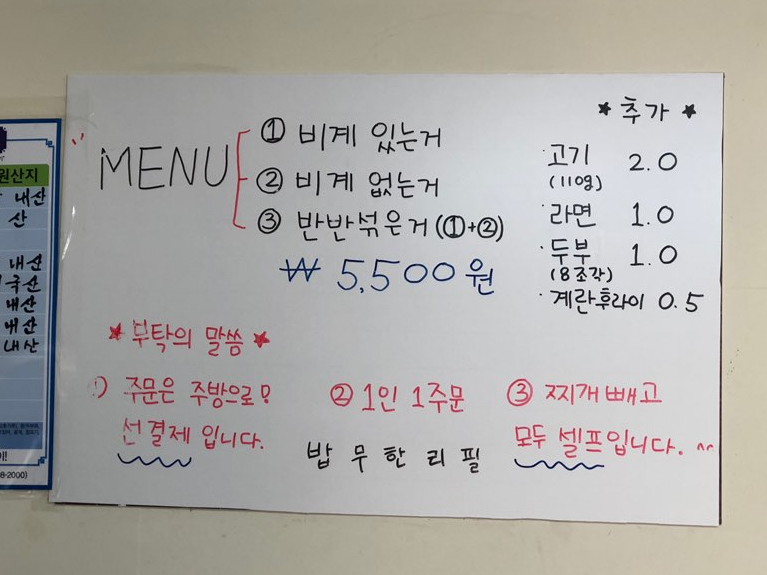 MENU
① 비계 있는거
② 비계 없는거
③ 반반섞은거 (①+②)
₩ 5,500원
★ 추가 ★
· 고기 2.0
(110g)
· 라면 1.0
· 두부 1.0
(8조각)
· 계란후라이 0.5
★ 부탁의 말씀 ★
① 주문은 주방으로!
선결제 입니다.
② 1인 1주문
밥 무한리필
③ 찌개빼고
모두 셀프입니다. ^^
원산지
내산
산
내산
국산
내산
내산
내산
8-2000)